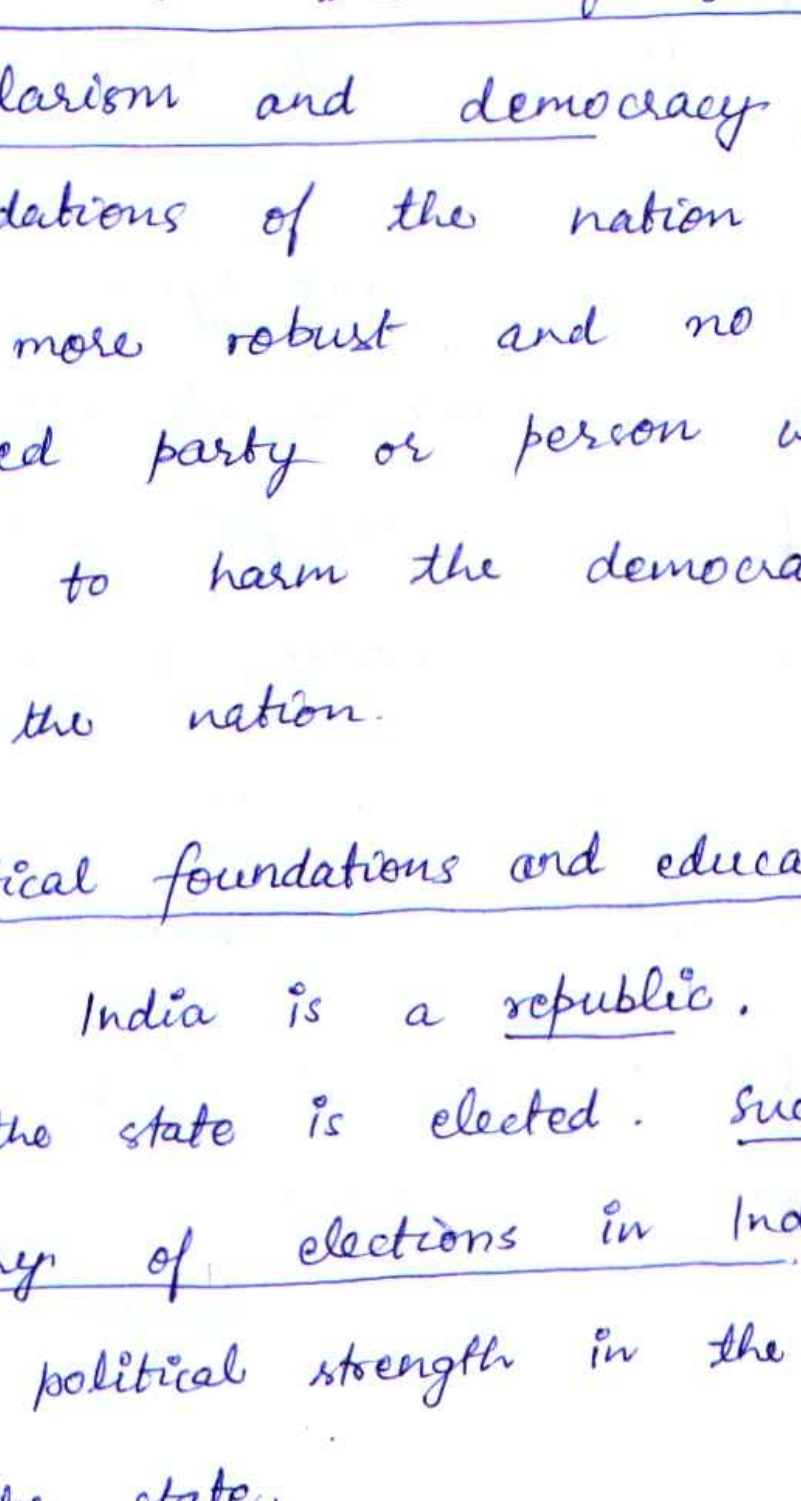 larism and democracy
dations of the nation
more robust and no
ed party or person w
to harm the democra
the nation.
ical foundations and educa
India is a republic.
the state is elected. Suc
of elections in Ind
political strength in the
state